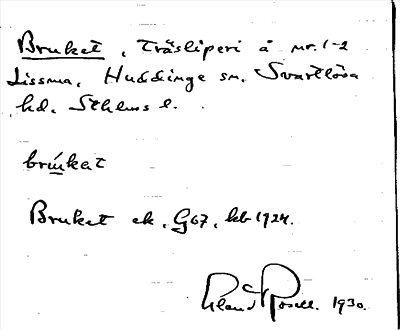 Bruket, Träsliperi å nr. 1-2
Lissma, Huddinge sn. Svartlösa
hd. Sthlms l.
brúkat
Bruket ek. G67, kb 1924.
Rosell. 1930.